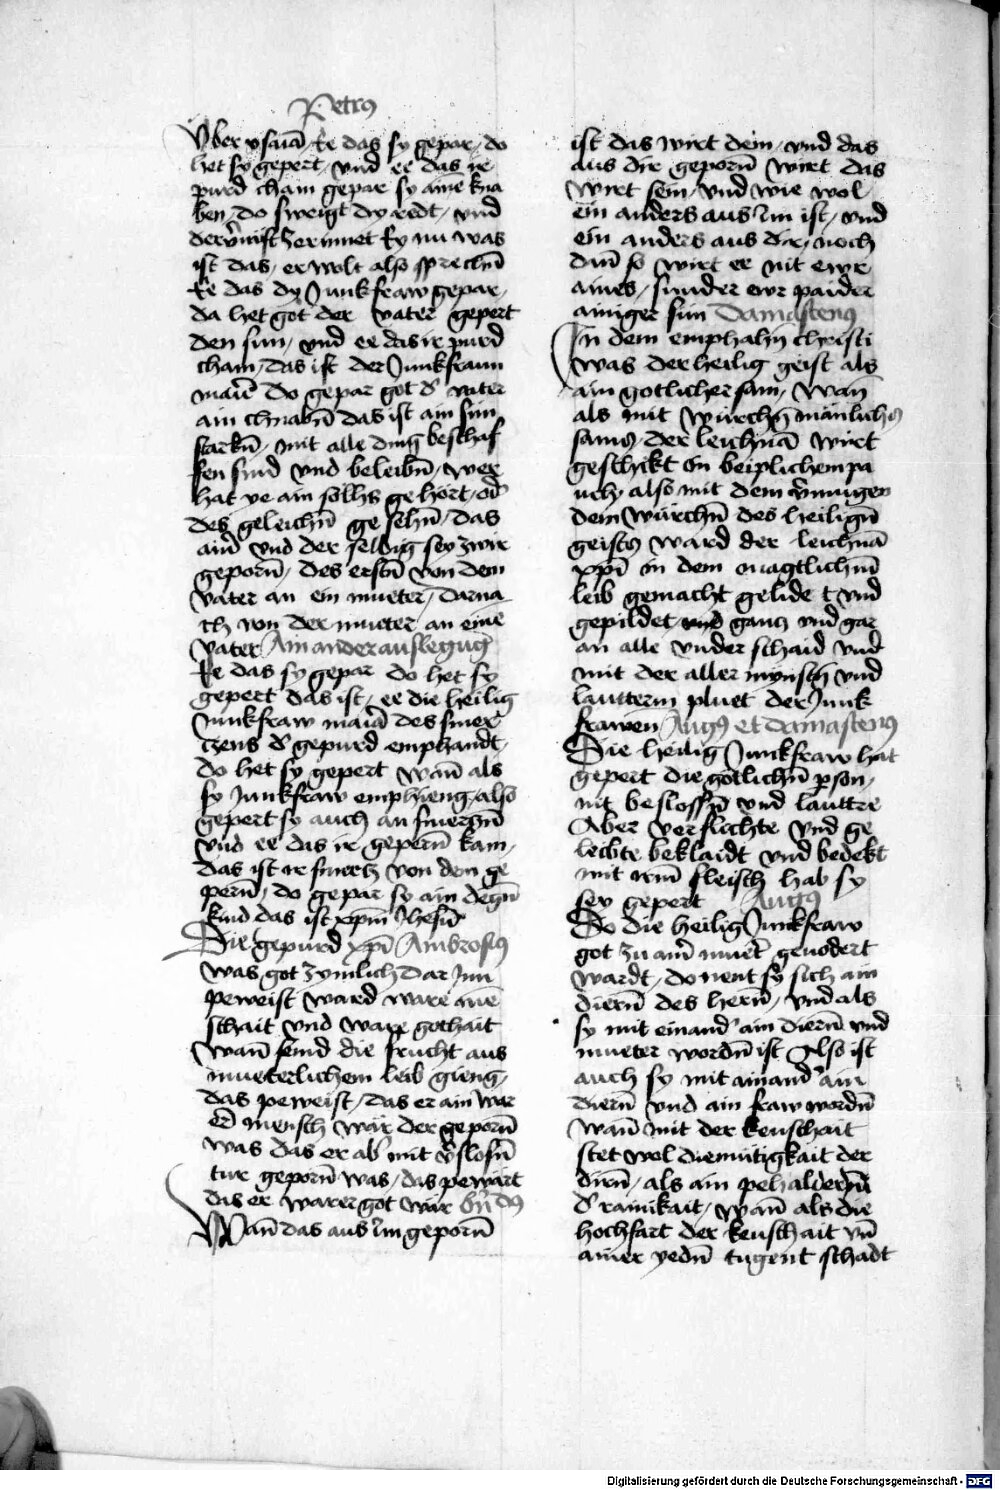 Petrus
Vber ysaiā Ee das sy gepar, do
het sy gepert, vnd ee das ir
purd cham gepar sy aine kna
ben, do sweigt dy redt, vnd
der v̄nift zerinnet Ey nu was
ist das, er wolt also sprechn̄
Ee das dy Junkfraw gepar,
da het got der vater gepert
den sun, vnd ee das ir purd
cham, das ist der Junkfraun
marīe do gepar got d' vater
ain chnabn̄ das ist ain sun
starkn̄, mit alle ding beschaf
fen sind vnd beleibn̄, wer
hat ye ain sölhs gehört, od'
des geleichn̄ gesehn̄, das
ain' vnd der selbig sey zwir
geporn̄, des erstn̄ von dem
vater an ein mueter, darna
ch von der mueter an eine
vater Ain ander auslegug
Ee das sy gepar do het sy
gepert das ist, ee die heilig
Junkfraw maria des smer
czens d' gepurd emphandt,
do het sy gepert wan̄ als
sy Junkfraw emphieng, also
gepert sy auch an smerczn̄
vnd ee das ir gepern̄ kam,
das ist ir smertz von dem ge
pern̄, do gepar sy ain degn̄
kind das ist xp̄m Jhesū
Die gepurd xp̄i Ambrosius
was got zymlich dar Jnn
peweist ward ware mē
schait vnd ware gothait
wan̄ seind die frucht aus
mueterlichem leib gieng,
das peweist, das er ain war
er mensch wär der geporn̄
was das er ab' mit v̄slosn̄
tur geporn̄ was, das pewärt
das er warer got wär Bn̄dus
Wan̄ das aus Im geporn̄
ist das wirt dein, vnd das
aus dir geporn̄ wirt das
wirt sein, vnd wie wol
ein anders aus Im ist, vnd
ein anders aus dir, noch
dan̄ so wirt er nit ewr
aines, sunder ewr paider
ainiger sun Damastenus
In dem emphahn̄ christi
was der heilig geist als
ain gotlicher sam, wan̄
als mit würchn̄ mänlichs
sams der leichnā wirt
geschikt in beiplichem pa
uch, also mit dem v̄mugen
dem würchn̄ des heilign̄
geists ward der leichnā
xp̄i in dem magtlichn̄
leib gemacht gelidet vnd
gepildet, vnd gancz vnd gar
an alle vnderschaid vnd
mit der aller mynsten vnd
lautterm pluet der Junk
frawen Augus et damastenus
Die heilig Junkfraw hat
gepert die götlichn̄ p̄son,
nit beslossn̄ vnd lauttre
Aber verflichte vnd ge
leibte beklaidt vnd bedekt
mit irm fleisch hab sy
sey gepert Augus
Do die heilig Junkfraw
got zu am̄ muet' geuodert
wardt, do nent sy sich ain
diern̄ des hern̄, vnd als
sy mit einand' ain diern̄ vnd
mueter wordn̄ ist Also ist
auch sy mit ainand' ain
diern̄ vnd ain fraw wordn̄
wan̄ mit der keuschait
stet wol diemütigkait der
dirn̄, als ain pehalderin̄
d' rainikait, wan̄ als die
hochfart der keuschait vn̄
ainer yedn̄ tugent schadt
Digitalisierung gefördert durch die Deutsche Forschungsgemeinschaft - DFG